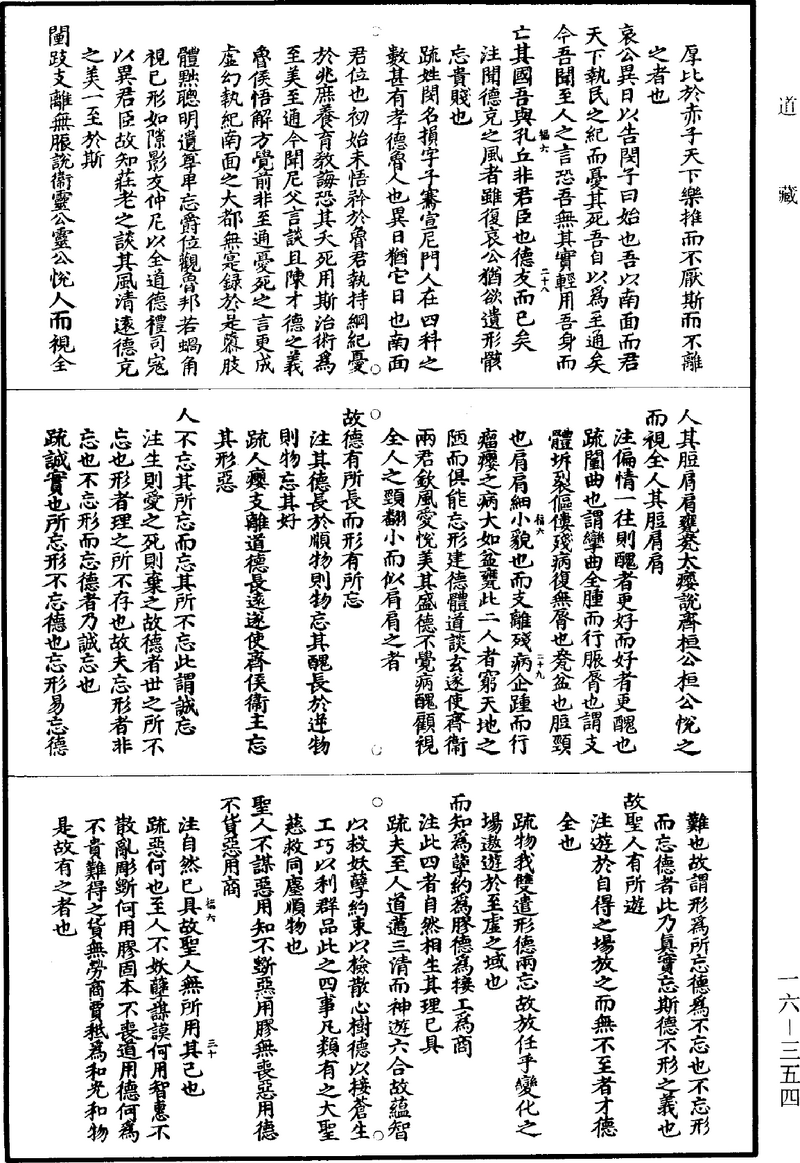 道藏
厚比於赤子天下樂推而不厭斯而不離
之者也
哀公異日以告閔子曰始也吾以南面而君
天下執民之紀而憂其死吾自以爲至通矣
今吾聞至人之言恐吾無其實輕用吾身而
亡其國吾與孔丘非君臣也德友而已矣
福六
二十八
注聞德充之風者雖復哀公猶欲遺形骸
忘貴賤也
疏姓閔名損字子騫宣尼門人在四科之
數甚有孝德魯人也異日猶它日也南面
君位也初始未悟矜於魯君執持綱紀憂
於兆庶養育敎誨恐其夭死用斯治術爲
至美至通今聞尼父言談且陳才德之義
魯侯悟解方覺前非至通憂死之言更成
虛幻執紀南面之大都無寔錄於是隳肢
體黜聰明遺尊卑忘爵位觀魯邦若蝸角
視已形如隙影友仲尼以全道德禮司寇
以異君臣故知莊老之談其風清遠德充
之美一至於斯
闉跂支離無脤說衛靈公靈公悅人而視全
人其脰肩肩甕㼜大癭說齊桓公桓公悅之
而視全人其脰肩肩
注偏情一往則醜者更好而好者更醜也
疏闉曲也謂攣曲全腫而行脤脣也謂支
體坼裂傴僂殘病復無脣也㼜盆也脰頸
也肩肩細小貌也而支離殘病企踵而行
福六
二十九
瘤癭之病大如盆甕此二人者窮天地之
陋而俱能忘形建德體道談玄遂使齊衛
兩君欽風愛悅美其盛德不覺病醜顧視
全人之頸翻小而似肩肩之者
故德有所長而形有所忘
注其德長於順物則物忘其醜長於逆物
則物忘其好
疏人癭支離道德長遠遂使齊侯衛主忘
其形惡
人不忘其所忘而忘其所不忘此謂誠忘
注生則愛之死則棄之故德者世之所不
忘也形者理之所不存也故夫忘形者非
忘也不忘形而忘德者乃誠忘也
疏誠實也所忘形不忘德也忘形易忘德
難也故謂形爲所忘德爲不忘也不忘形
而忘德者此乃眞實忘斯德不形之義也
故聖人有所遊
注遊於自得之場放之而無不至者才德
全也
疏物我雙遣形德兩忘故放任乎變化之
場遨遊於至虛之域也
而知爲孽約爲膠德爲接工爲商
注此四者自然相生其理已具
疏夫至人道邁三清而神遊六合故蘊智
以救妖孽約束以撿散心樹德以接蒼生
工巧以利群品此之四事凡類有之大聖
慈救同塵順物也
聖人不謀惡用知不斲惡用膠無喪惡用德
不貨惡用商
注自然已具故聖人無所用其己也
福六
三十
疏惡何也至人不妖孽謀謨何用智惠不
散亂彫斲何用膠固本不喪道用德何爲
不貴難得之貨無勞商賈秪爲和光和物
是故有之者也
一六—三五四